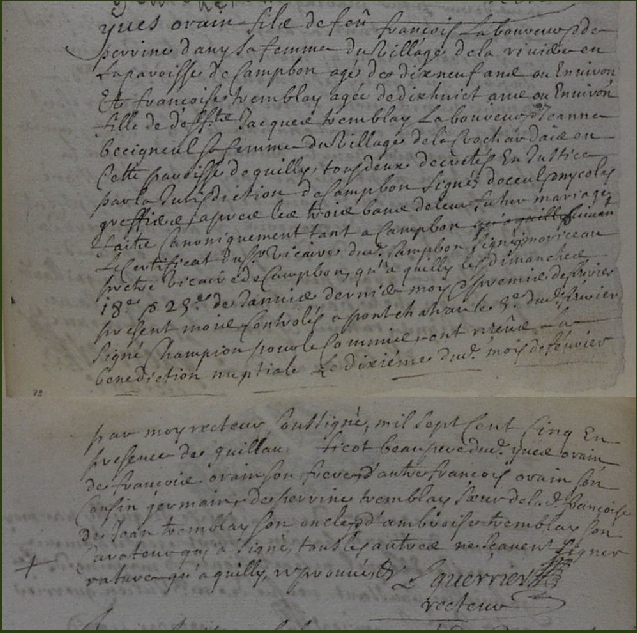 yues orain fils de feu françois Laboureur & de
perrine dany sa femme du Village de la riviere en
La paroisse de Campbon agé de dixneuf ans ou Environ
Et françoise tremblay agée de dixhuict ans ou Environ
fille de deffunt Jacques tremblay Laboureur & Jeanne
becigneul sa femme du Village de la Crochardaie en
Cette paroisse de quilly, tous deux decretés En Justice
par la Jurisdiction de Campbon Signés
greffier apres les trois bans de leur futur mariage
faits Canoniquement tant a Campbon
Le Certificat du Sr Vicaire dud. Campbon Signé moriceau
prétre Vicaire de Campbon, qu'a quilly les dimanches
18e & 25e de Janvier dernier mois & premier de fevrier
present mois Controlés a pontchateau le 8e dud. fevrier
Signé Champion pour le Commis ont reçu la
benediction nuptiale Le dixiéme dud. mois de fevrier
par moy recteur Soussigné, mil Sept Cent Cinq En
presence de guillau ticot beaupere dud. yues orain
de françois orain Son frere, d'autre françois orain Son
Cousin germain, de perrine tremblay Sœur de la d. françoise
de Jean tremblay Son oncle & d'ambroise tremblay Son
Curateur qui a Signé, tous les autres ne Sçavent Signer
rature qu'a quilly, reprouvée
Leguerrier
recteur